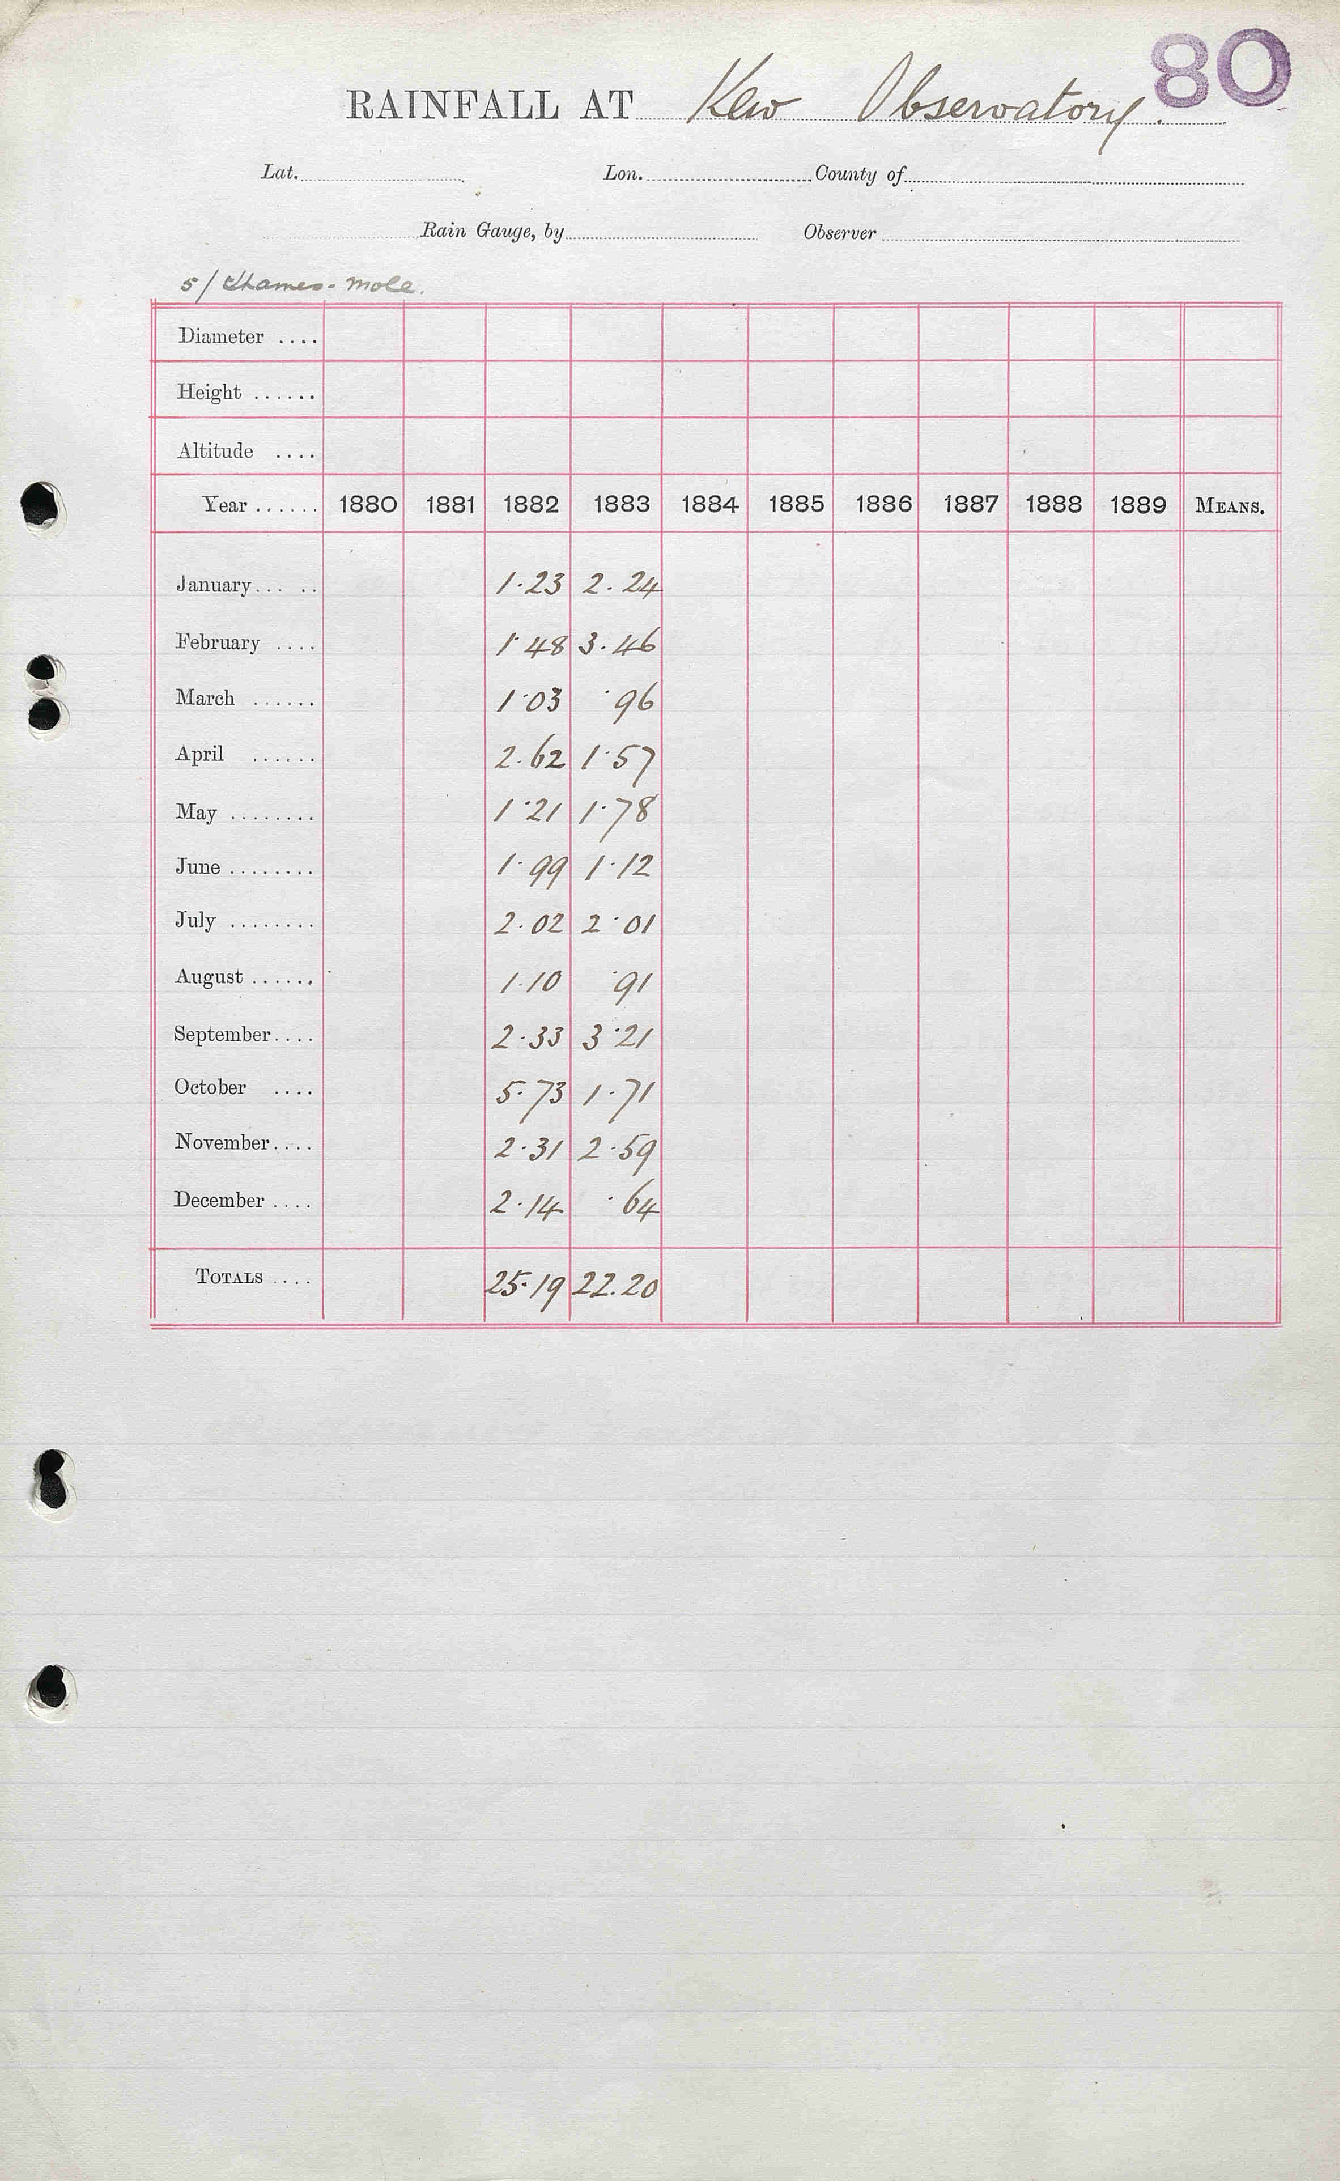 80
RAINFALL AT Kew Observatory.
Lat. Lon. County of
Rain Gauge, by Observer
5/ Thames-Mole.
Diameter ....
Height ......
Altitude ....
Year ...... 1880 1881 1882 1883 1884 1885 1886 1887 1888 1889 MEANS.
January... .. 1.23 2.24
February .... 1.48 3.46
March ...... 1.03 .96
April ...... 2.62 1.57
May ........ 1.21 1.78
June ........ 1.99 1.12
July ........ 2.02 2.01
August ...... 1.10 .91
September .... 2.33 3.21
October .... 5.73 1.71
November .... 2.31 2.59
December .... 2.14 .64
TOTALS .... 25.19 22.20